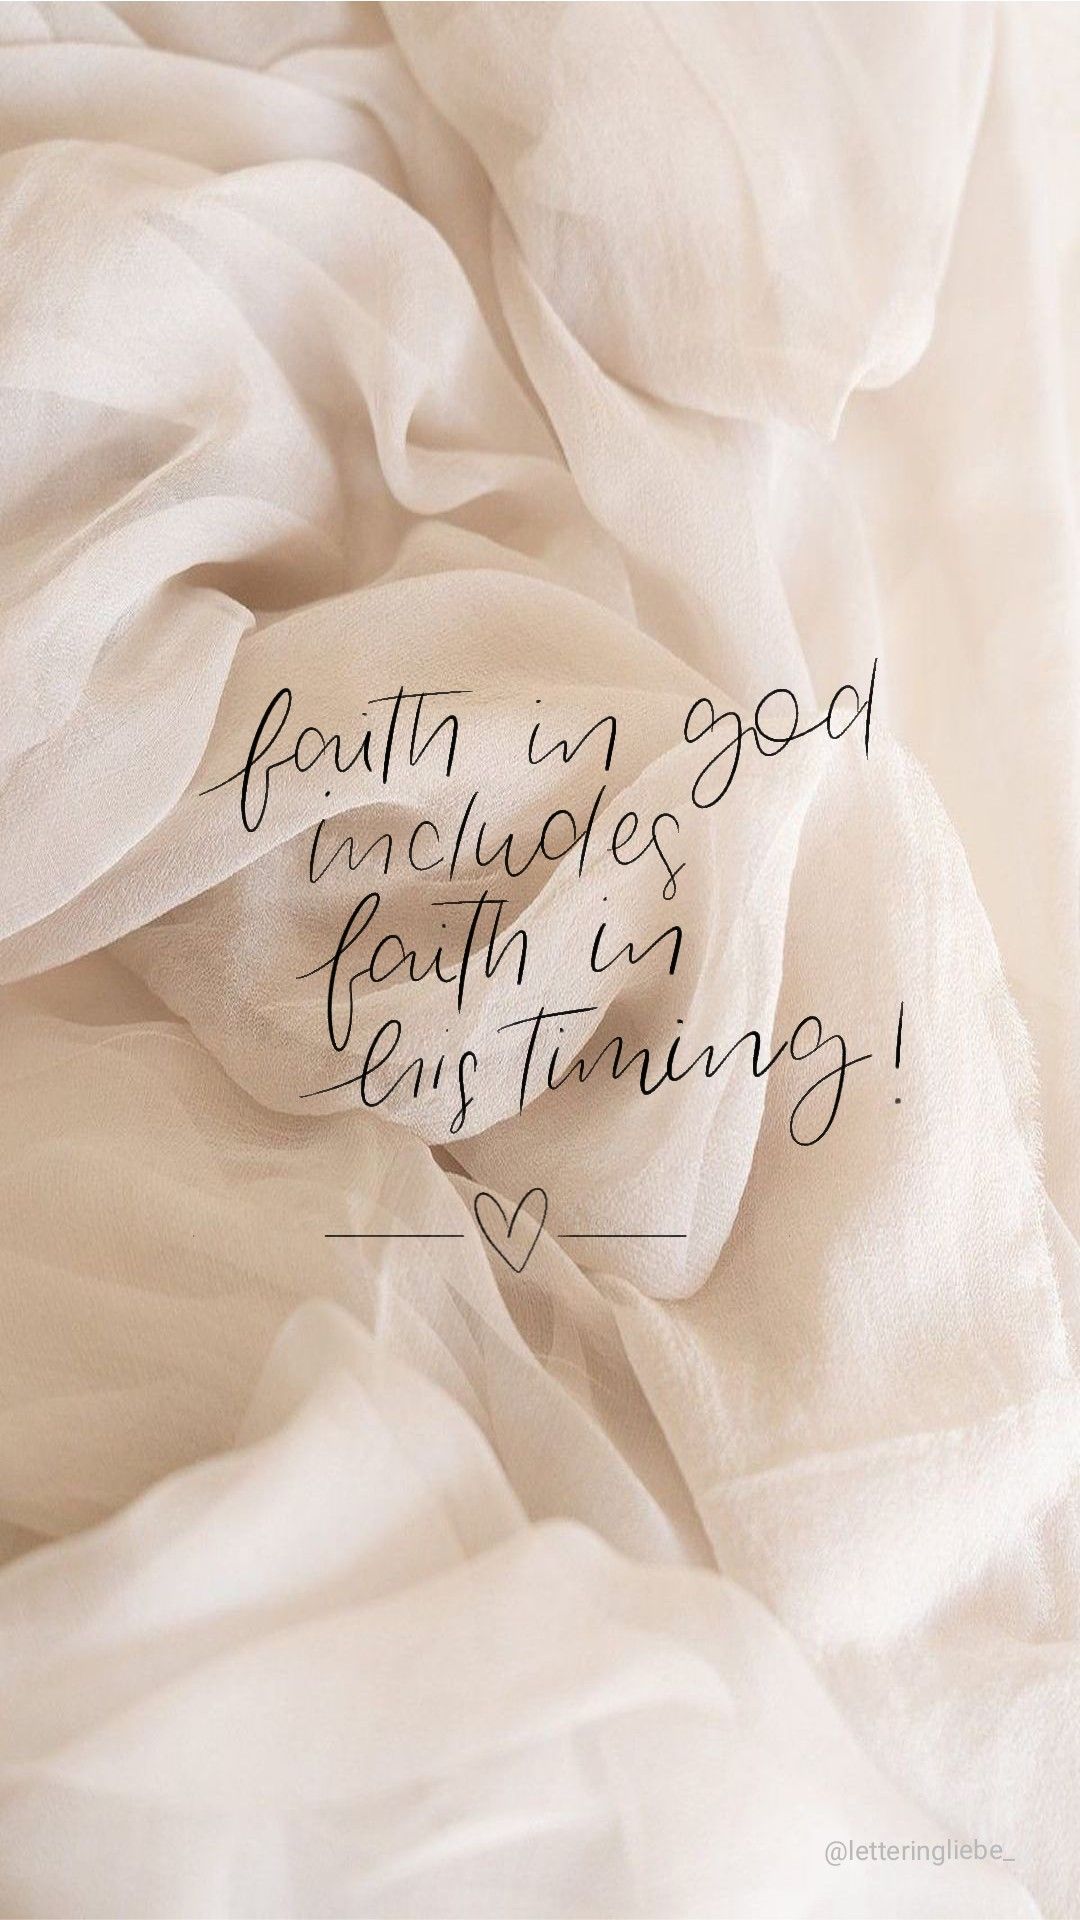 faith in god
includes
faith in
his timing!
@letteringliebe_